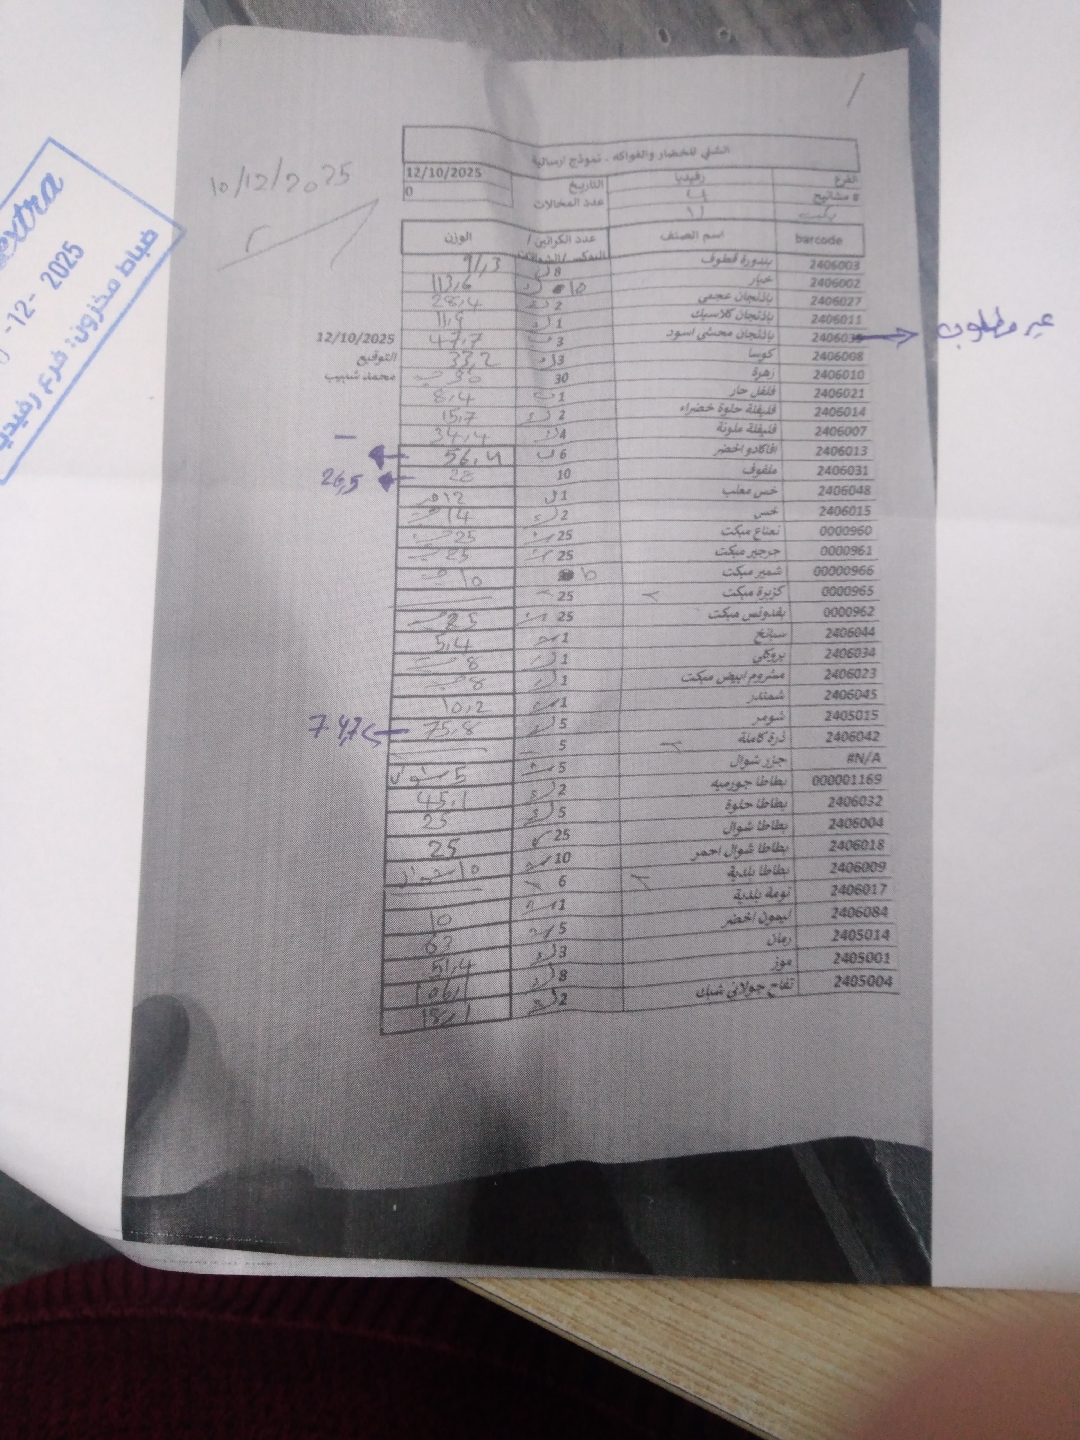 10/12/2025
extra
-12- 2025
ضباط مخزون: فرع رفيديا
الشني للخضار والفواكه - نموذج ارسالية
الفرع رفيديا التاريخ 12/10/2025
# مشاتيح 4 عدد المخالات 0
barcode اسم الصنف عدد الكراتين / البكس / الشوالات الوزن
2406003 بندورة قطوف 8 91,3
2406002 خيار 10 113,6
2406027 باذنجان عجمي 2 28,4
2406011 باذنجان كلاسيك 1 11,9
غير مطلوب
باذنجان محشي اسود 3 47,7 12/10/2025
2406008 كوسا 3 33,2 التوقيع
2406010 زهرة 30 30 محمد شبيب
2406021 فلفل حار 1 8,4
2406014 فليفلة حلوة خضراء 2 15,7
2406007 فليفلة ملونة 4 34,4
2406013 افاكادو اخضر 6 56,4 -
2406031 ملفوف 10 28 26,5
2406048 خس معلب 1 12
2406015 خس 2 14
0000960 نعناع مبكت 25 25
0000961 جرجير مبكت 25 25
00000966 شمير مبكت 10
0000965 كزبرة مبكت 25
0000962 بقدونس مبكت 25 25
2406044 سبانخ 1 5,4
2406034 بروكلي 1 8
2406023 مشروم ابيض مبكت 1 8
2406045 شمندر 1 10,2
2405015 شومر 5 75,8 74,7
2406042 ذرة كاملة 5
#N/A جزر شوال 5 5 شوال
000001169 بطاطا جورميه 2 45,1
2406032 بطاطا حلوة 5 25
2406004 بطاطا شوال 25 25
2406018 بطاطا شوال احمر 10 10 شوال
2406009 بطاطا بلدية 6
2406017 تومة بلدية 1 10
2406084 ليمون اخضر 5 63
2405014 رمان 3 51,4
2405001 موز 8
2405004 تفاح جولاني شبك 2 18,1